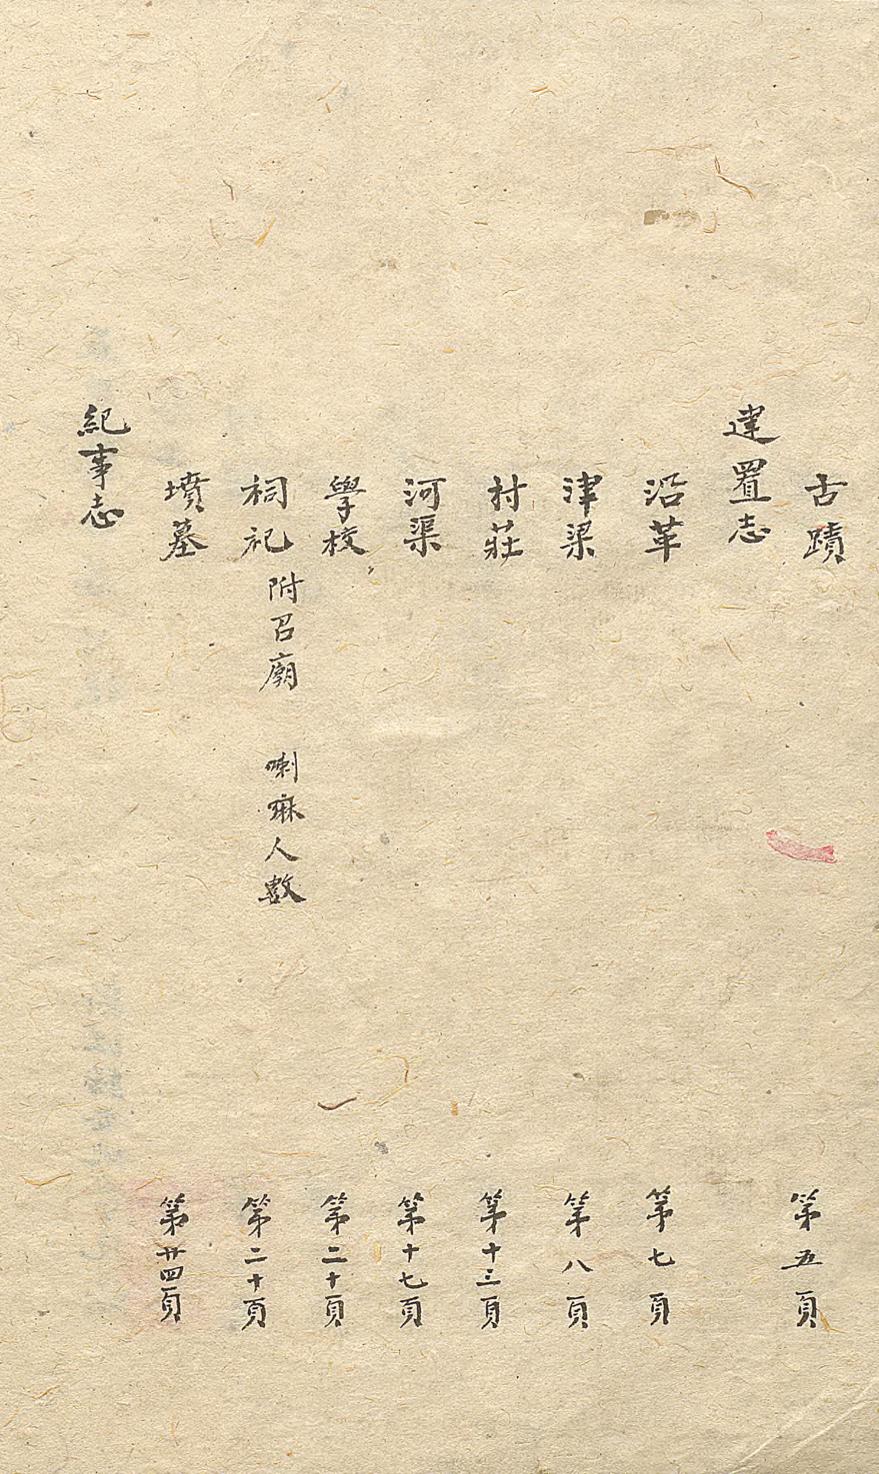 古蹟 第五頁
建置志
沿革 第七頁
津梁 第八頁
村莊 第十三頁
河渠 第十七頁
學校 第二十頁
祠祀 附召廟 喇嘛人數 第二十頁
墳墓 第廿四頁
紀事志